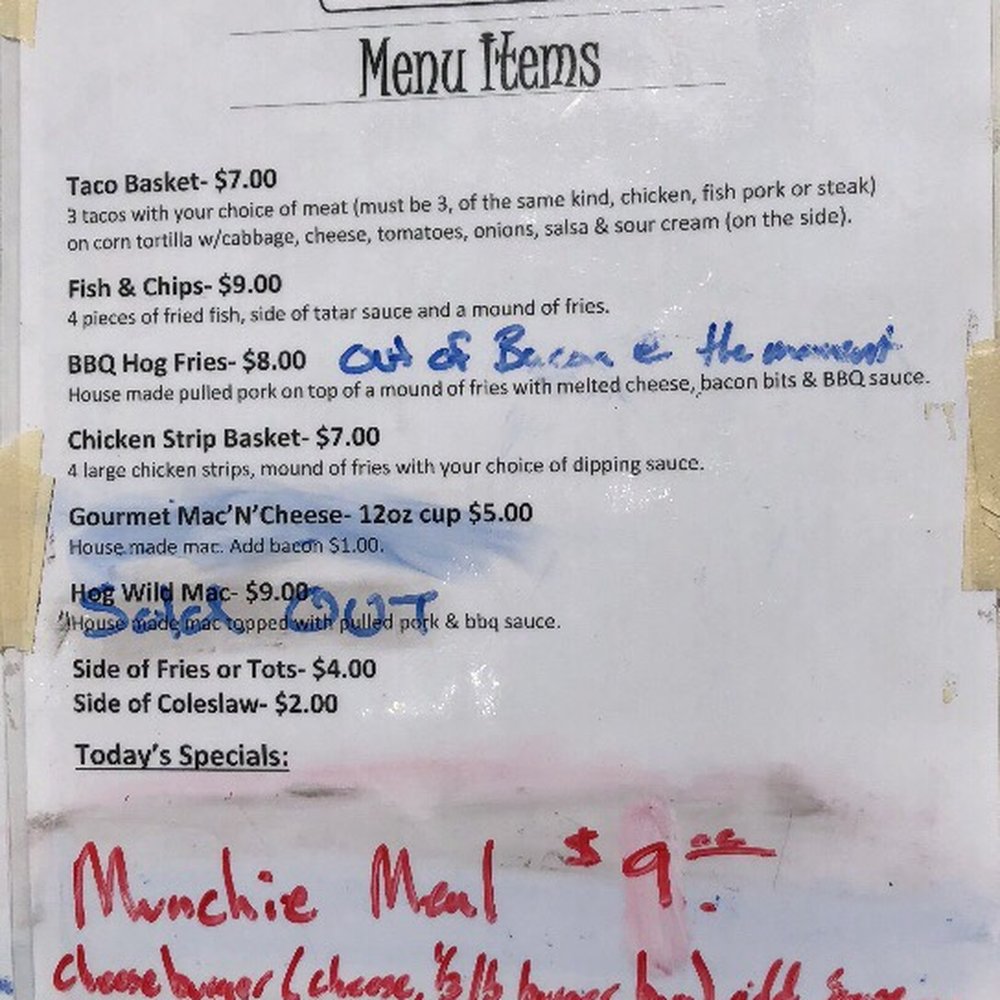 Menu Items
Taco Basket- $7.00
3 tacos with your choice of meat (must be 3, of the same kind, chicken, fish pork or steak)
on corn tortilla w/cabbage, cheese, tomatoes, onions, salsa & sour cream (on the side).
Fish & Chips- $9.00
4 pieces of fried fish, side of tatar sauce and a mound of fries.
BBQ Hog Fries- $8.00 Out of Bacon @ the moment
House made pulled pork on top of a mound of fries with melted cheese, bacon bits & BBQ sauce.
Chicken Strip Basket- $7.00
4 large chicken strips, mound of fries with your choice of dipping sauce.
Gourmet Mac'N'Cheese- 12oz cup $5.00
House made mac. Add bacon $1.00.
Hog Wild Mac- $9.00
Sold OUT
House made mac topped with pulled pork & bbq sauce.
Side of Fries or Tots- $4.00
Side of Coleslaw- $2.00
Today's Specials:
Munchie Meal $9.00
cheeseburger (cheese, 1/3 lb burger bun)